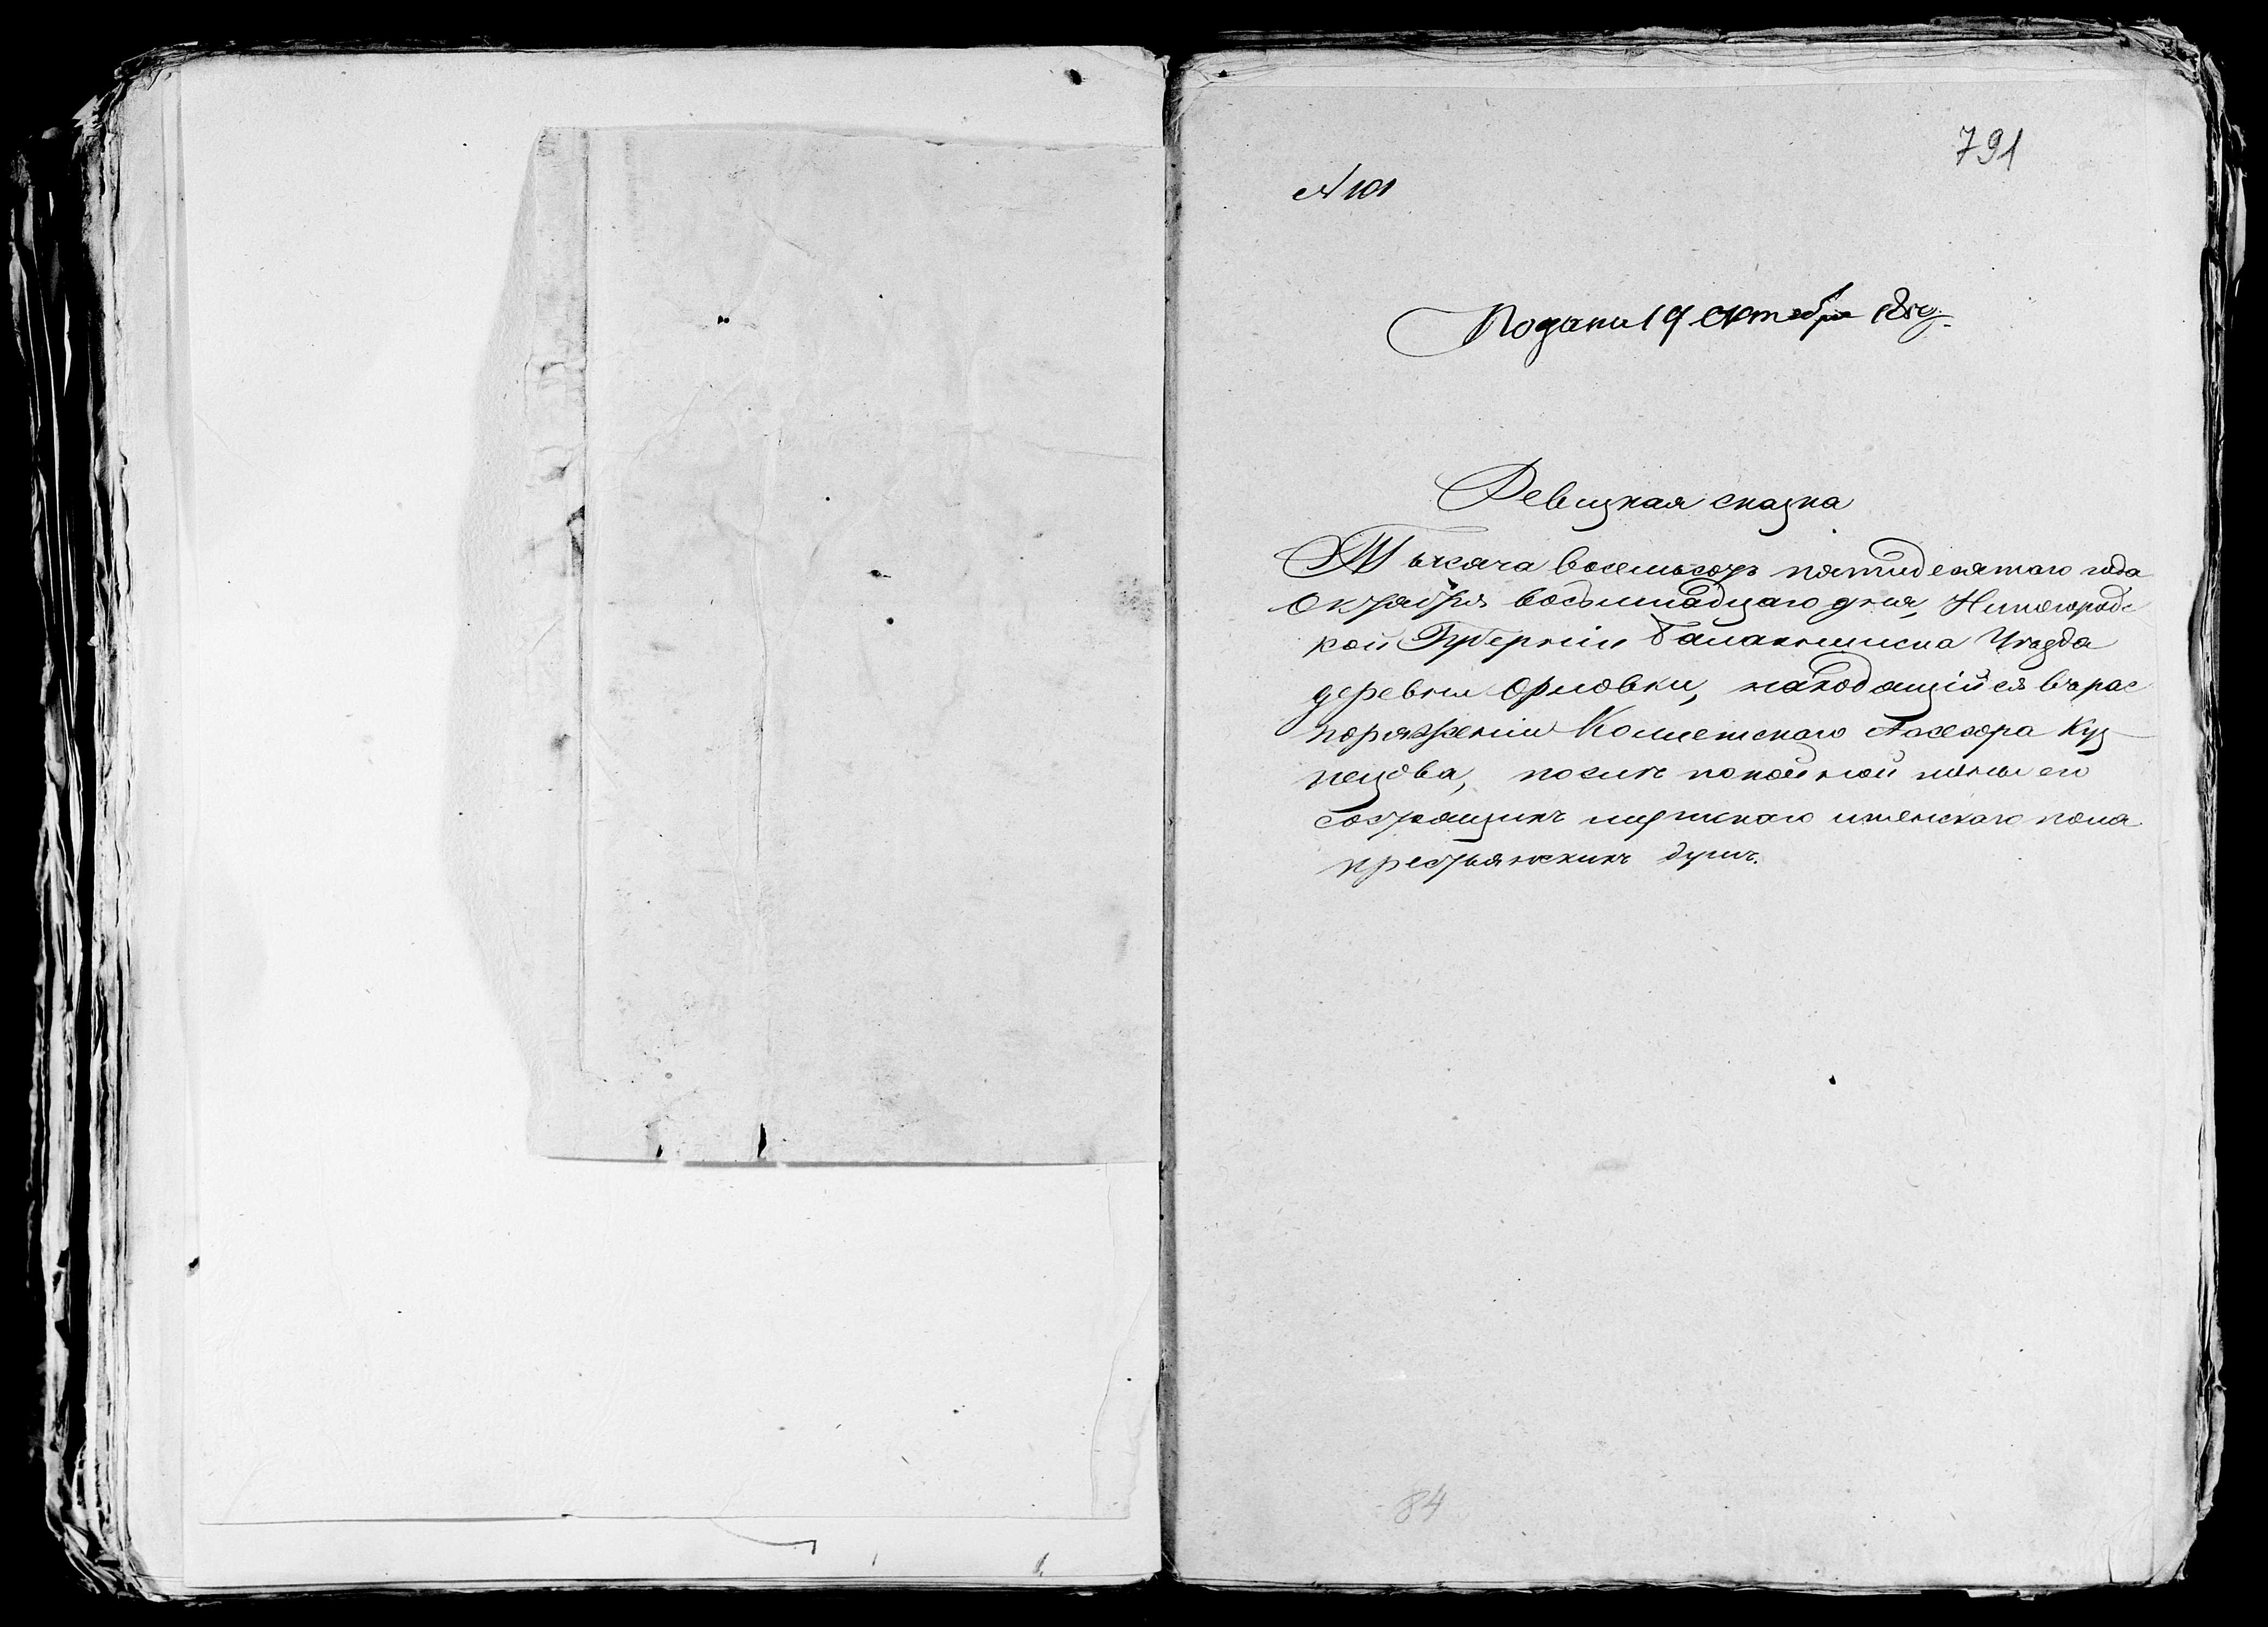 791
№ 101
Подана 19 Октября 1850 г.
Ревизская сказка
Тысяча восемьсотъ пятидесятаго года
Октября восьмнадцаго дня, Нижегородс
кой Губерніи Балахнинска Уѣзда
деревни Орловки, находящійся въ рас
поряженіи Колежскаго Ассесора Куз
нецова, послѣ покойной жены его
состоящихъ мужскаго и женскаго пола
крестьянскихъ душъ.
84